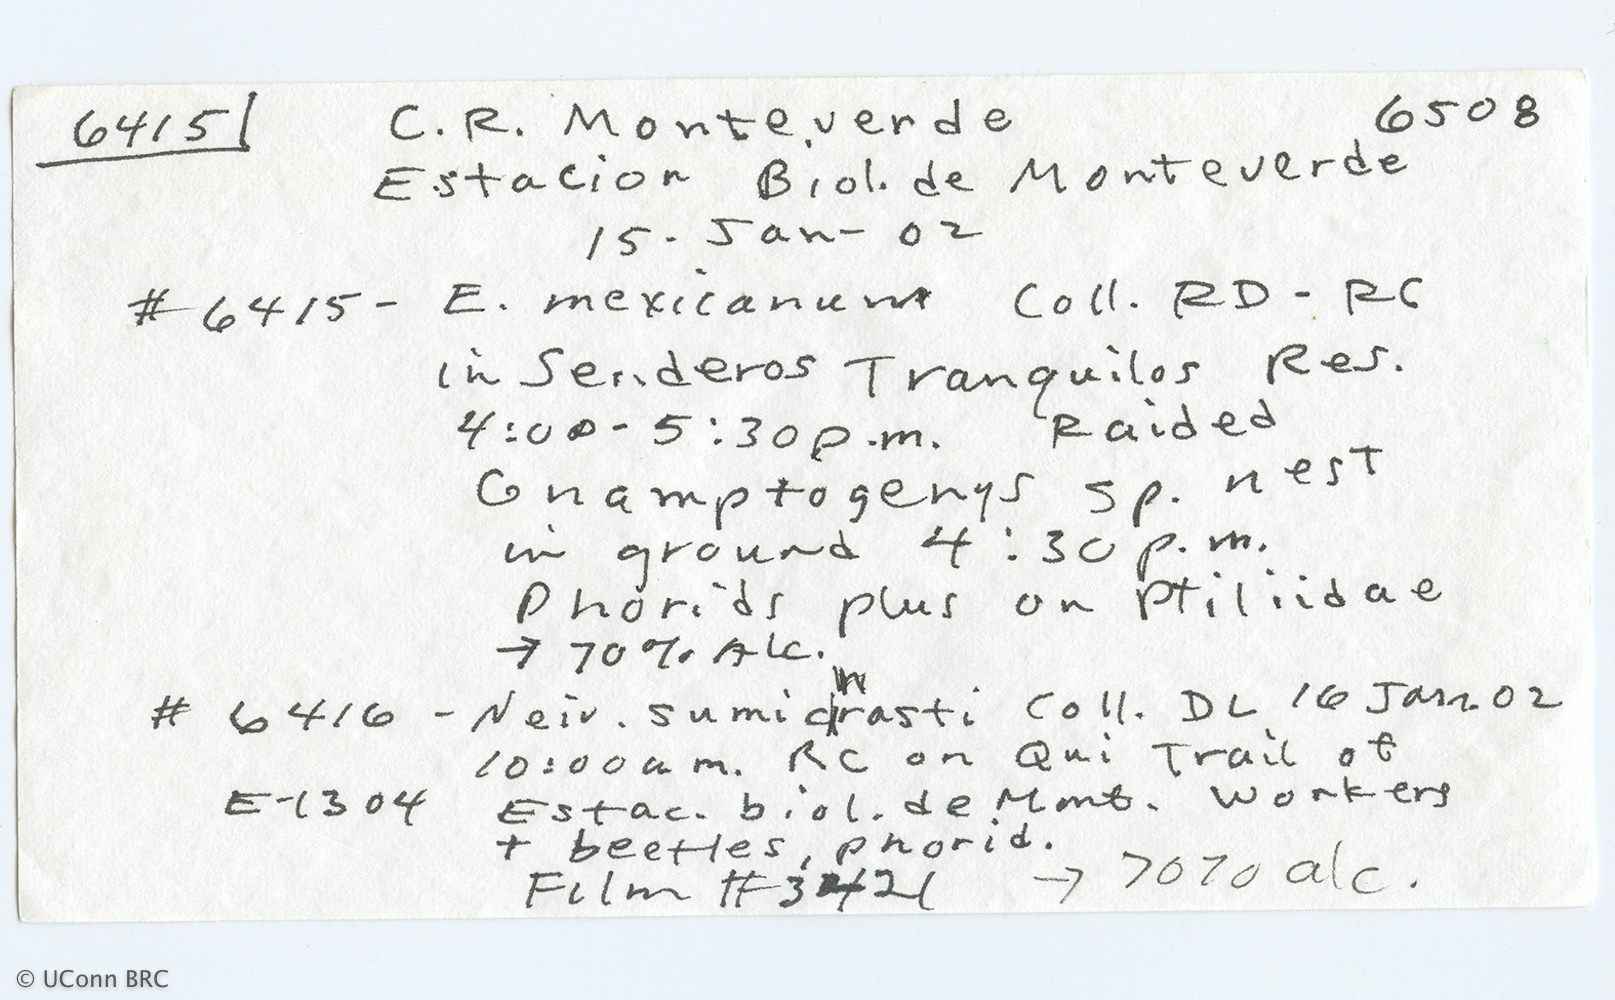 6415 C.R. Monteverde 6508
Estacion Biol. de Monteverde
15-Jan-02
#6415- E. mexicanum Coll. RD-RC
in Senderos Tranquilos Res.
4:00-5:30p.m. Raided
Gnamptogenys sp. nest
in ground 4:30p.m.
Phorids plus on Ptiliidae
→ 70% Alc.
#6416 - Neiv. sumichrasti Coll. DL 16 Jan.02
10:00am. RC on Qui Trail of
E-1304 Estac. biol. de Mont. Workers
+ beetles, phorid.
Film # → 70% alc.
© UConn BRC